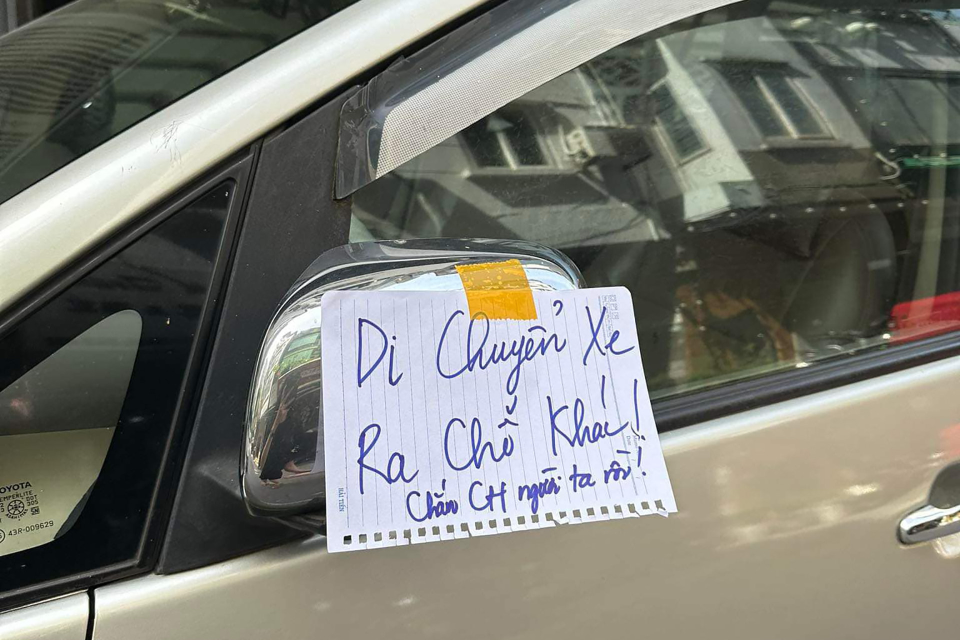 Di Chuyển Xe
Ra Chỗ Khác!
Chắn CH người ta rồi!
HẢI TIẾN
TOYOTA
TEMPERLITE
43R-009629